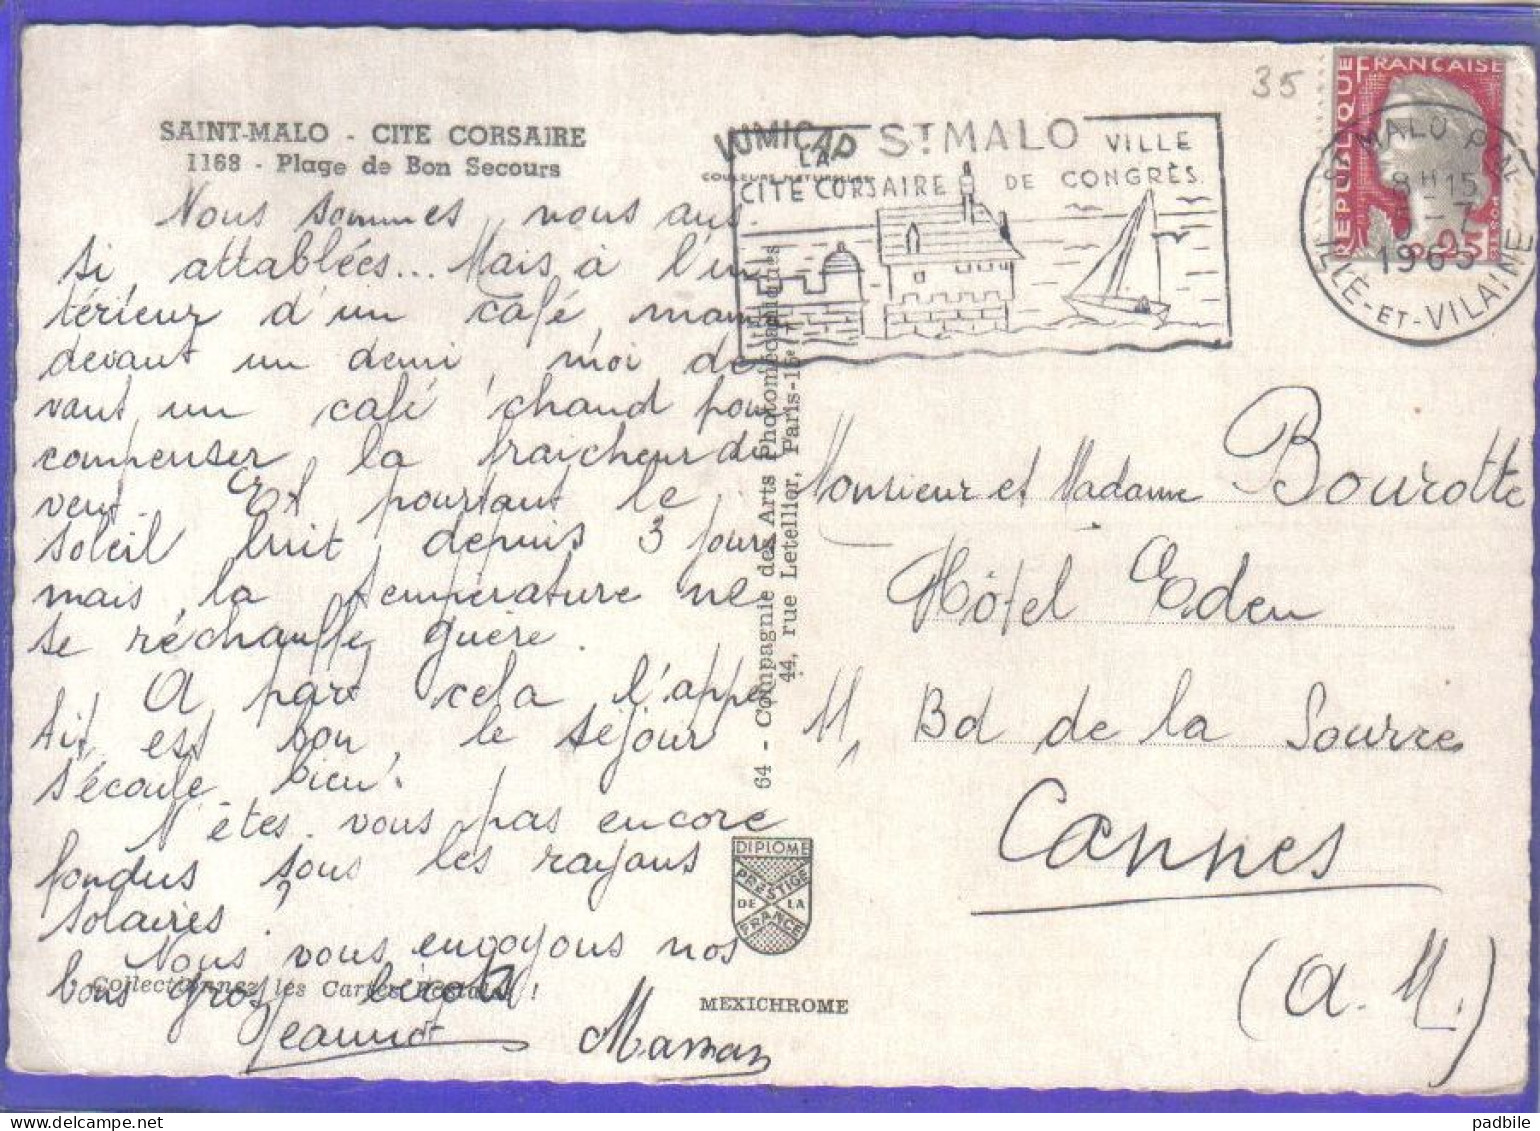 SAINT-MALO - CITE CORSAIRE
1168 - Plage de Bon Secours
Nous sommes, nous aus-
si, attablées... Mais à l'in
térieur d'un café, maman
devant un demi, moi de
vant un café chaud pour
compenser la fraîcheur du
vent. Et pourtant le
soleil luit, depuis 3 jours
mais, la température ne
se réchauffe guère.
A part cela l'appé
tit est bon, le séjour
s'écoule bien.
N'êtes-vous pas encore
fondus sous les rayons
solaires ?
Nous vous envoyons nos
bons gros bicots !
Jeannot Maman
Collectionnez les Cartes Postales
LUMICAP
COULEURS NATURELLES
64 - Compagnie des Arts Photomécaniques
44, rue Letellier, Paris-15e
DIPLOME
PRESTIGE
DE LA
FRANCE
MEXICHROME
ST MALO VILLE
DE CONGRÈS
LA
CITE CORSAIRE
35
REPUBLIQUE FRANÇAISE
0,25
ST MALO PAL
8 H 15
-7
1963
ILLE-ET-VILAINE
Monsieur et Madame Bourotte
Hôtel Eden
11, Bd de la Sourre
Cannes
(A.M.)
padbile